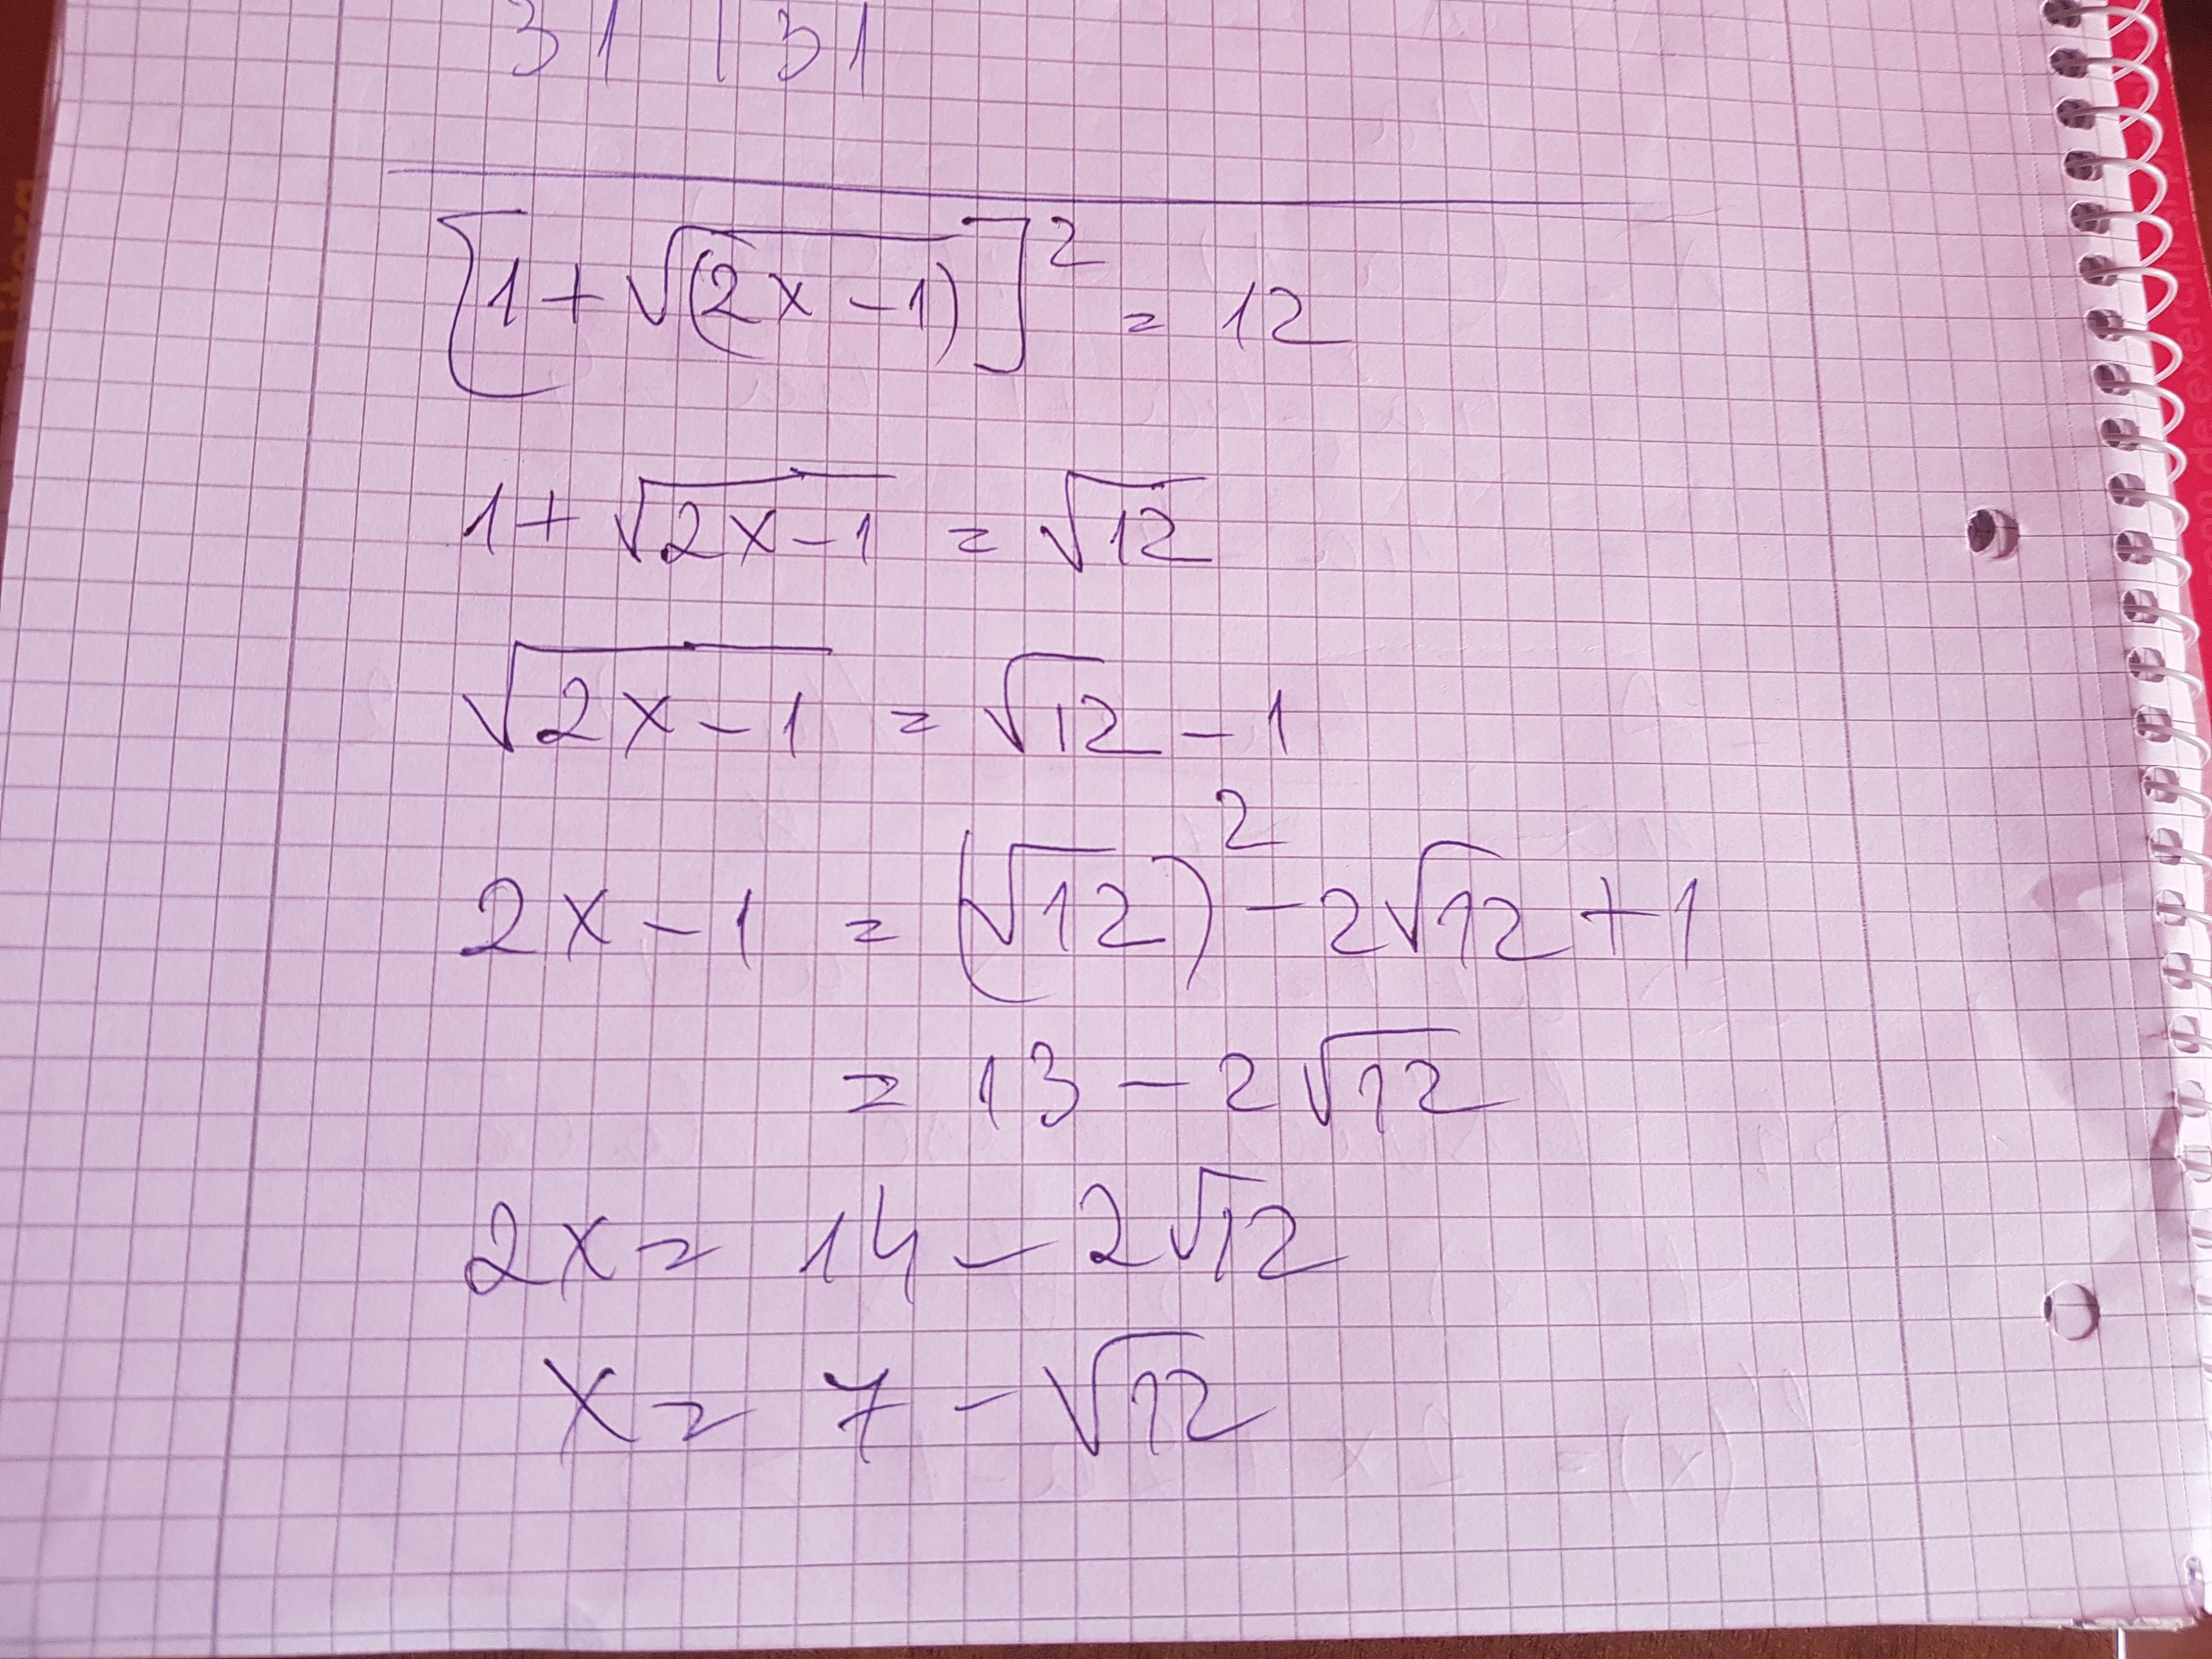 31 | 31
[1+√(2x-1)]² = 12
1+√2x-1 = √12
√2x-1 = √12 - 1
2x-1 = (√12)² - 2√12 + 1
= 13 - 2√12
2x = 14 - 2√12
x = 7 - √12